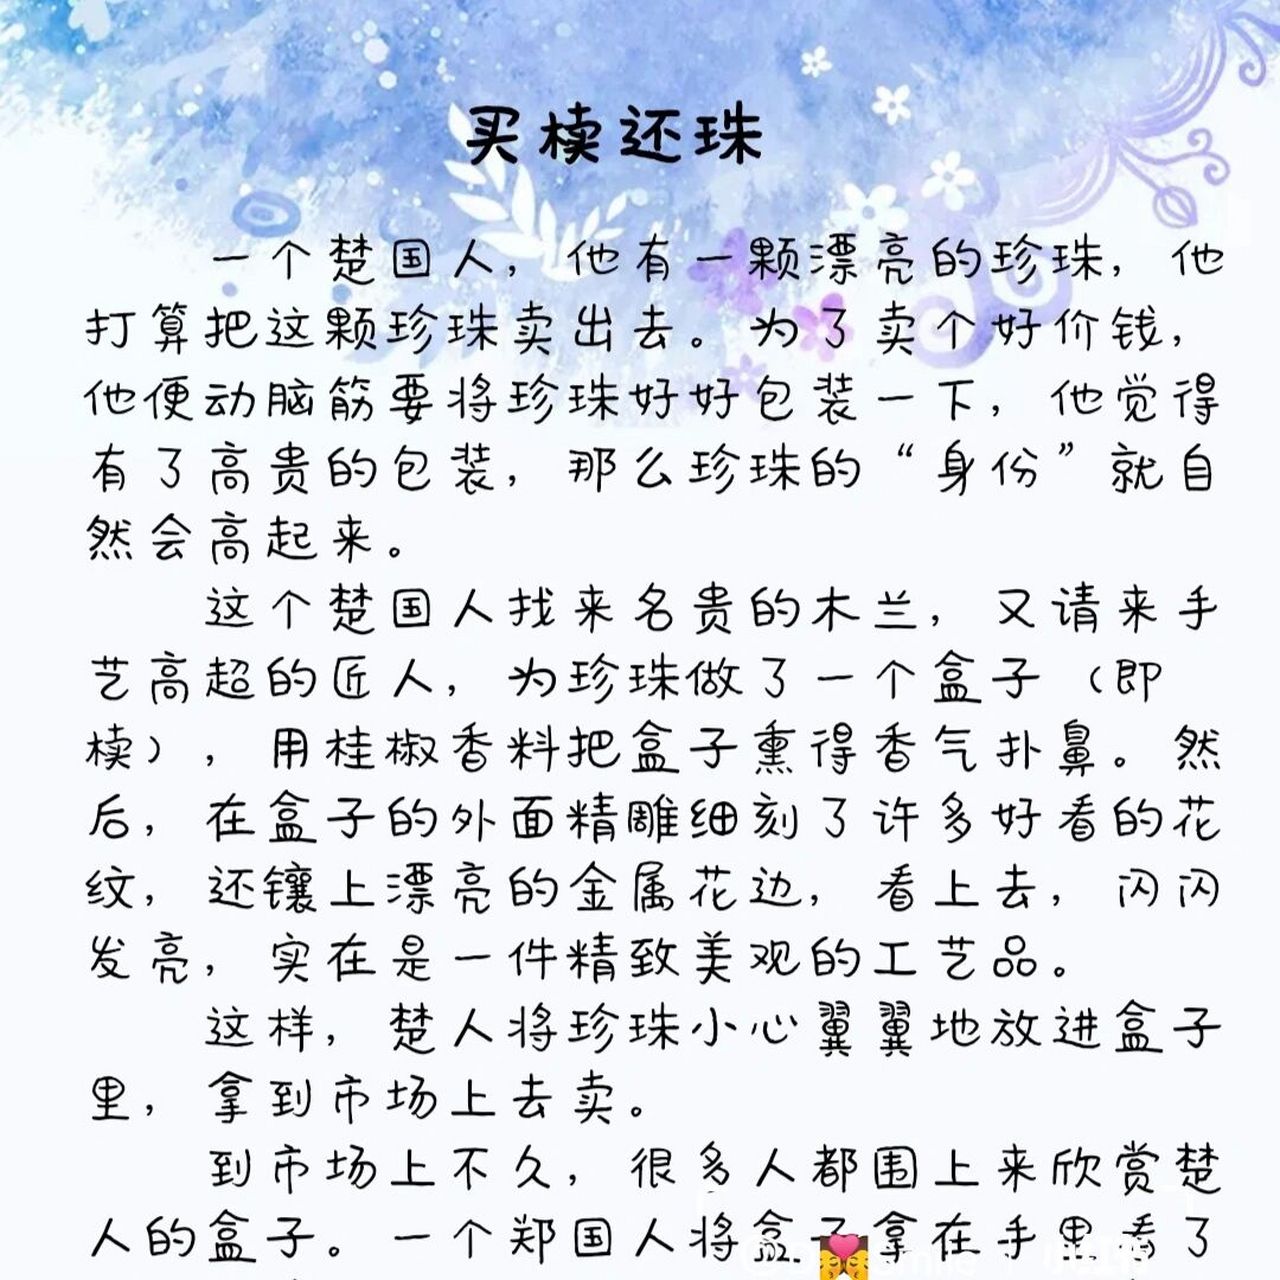 买椟还珠
一个楚国人，他有一颗漂亮的珍珠，他
打算把这颗珍珠卖出去。为了卖个好价钱，
他便动脑筋要将珍珠好好包装一下，他觉得
有了高贵的包装，那么珍珠的“身份”就自
然会高起来。
这个楚国人找来名贵的木兰，又请来手
艺高超的匠人，为珍珠做了一个盒子（即
椟），用桂椒香料把盒子熏得香气扑鼻。然
后，在盒子的外面精雕细刻了许多好看的花
纹，还镶上漂亮的金属花边，看上去，闪闪
发亮，实在是一件精致美观的工艺品。
这样，楚人将珍珠小心翼翼地放进盒子
里，拿到市场上去卖。
到市场上不久，很多人都围上来欣赏楚
人的盒子。一个郑国人将盒子拿在手里看了